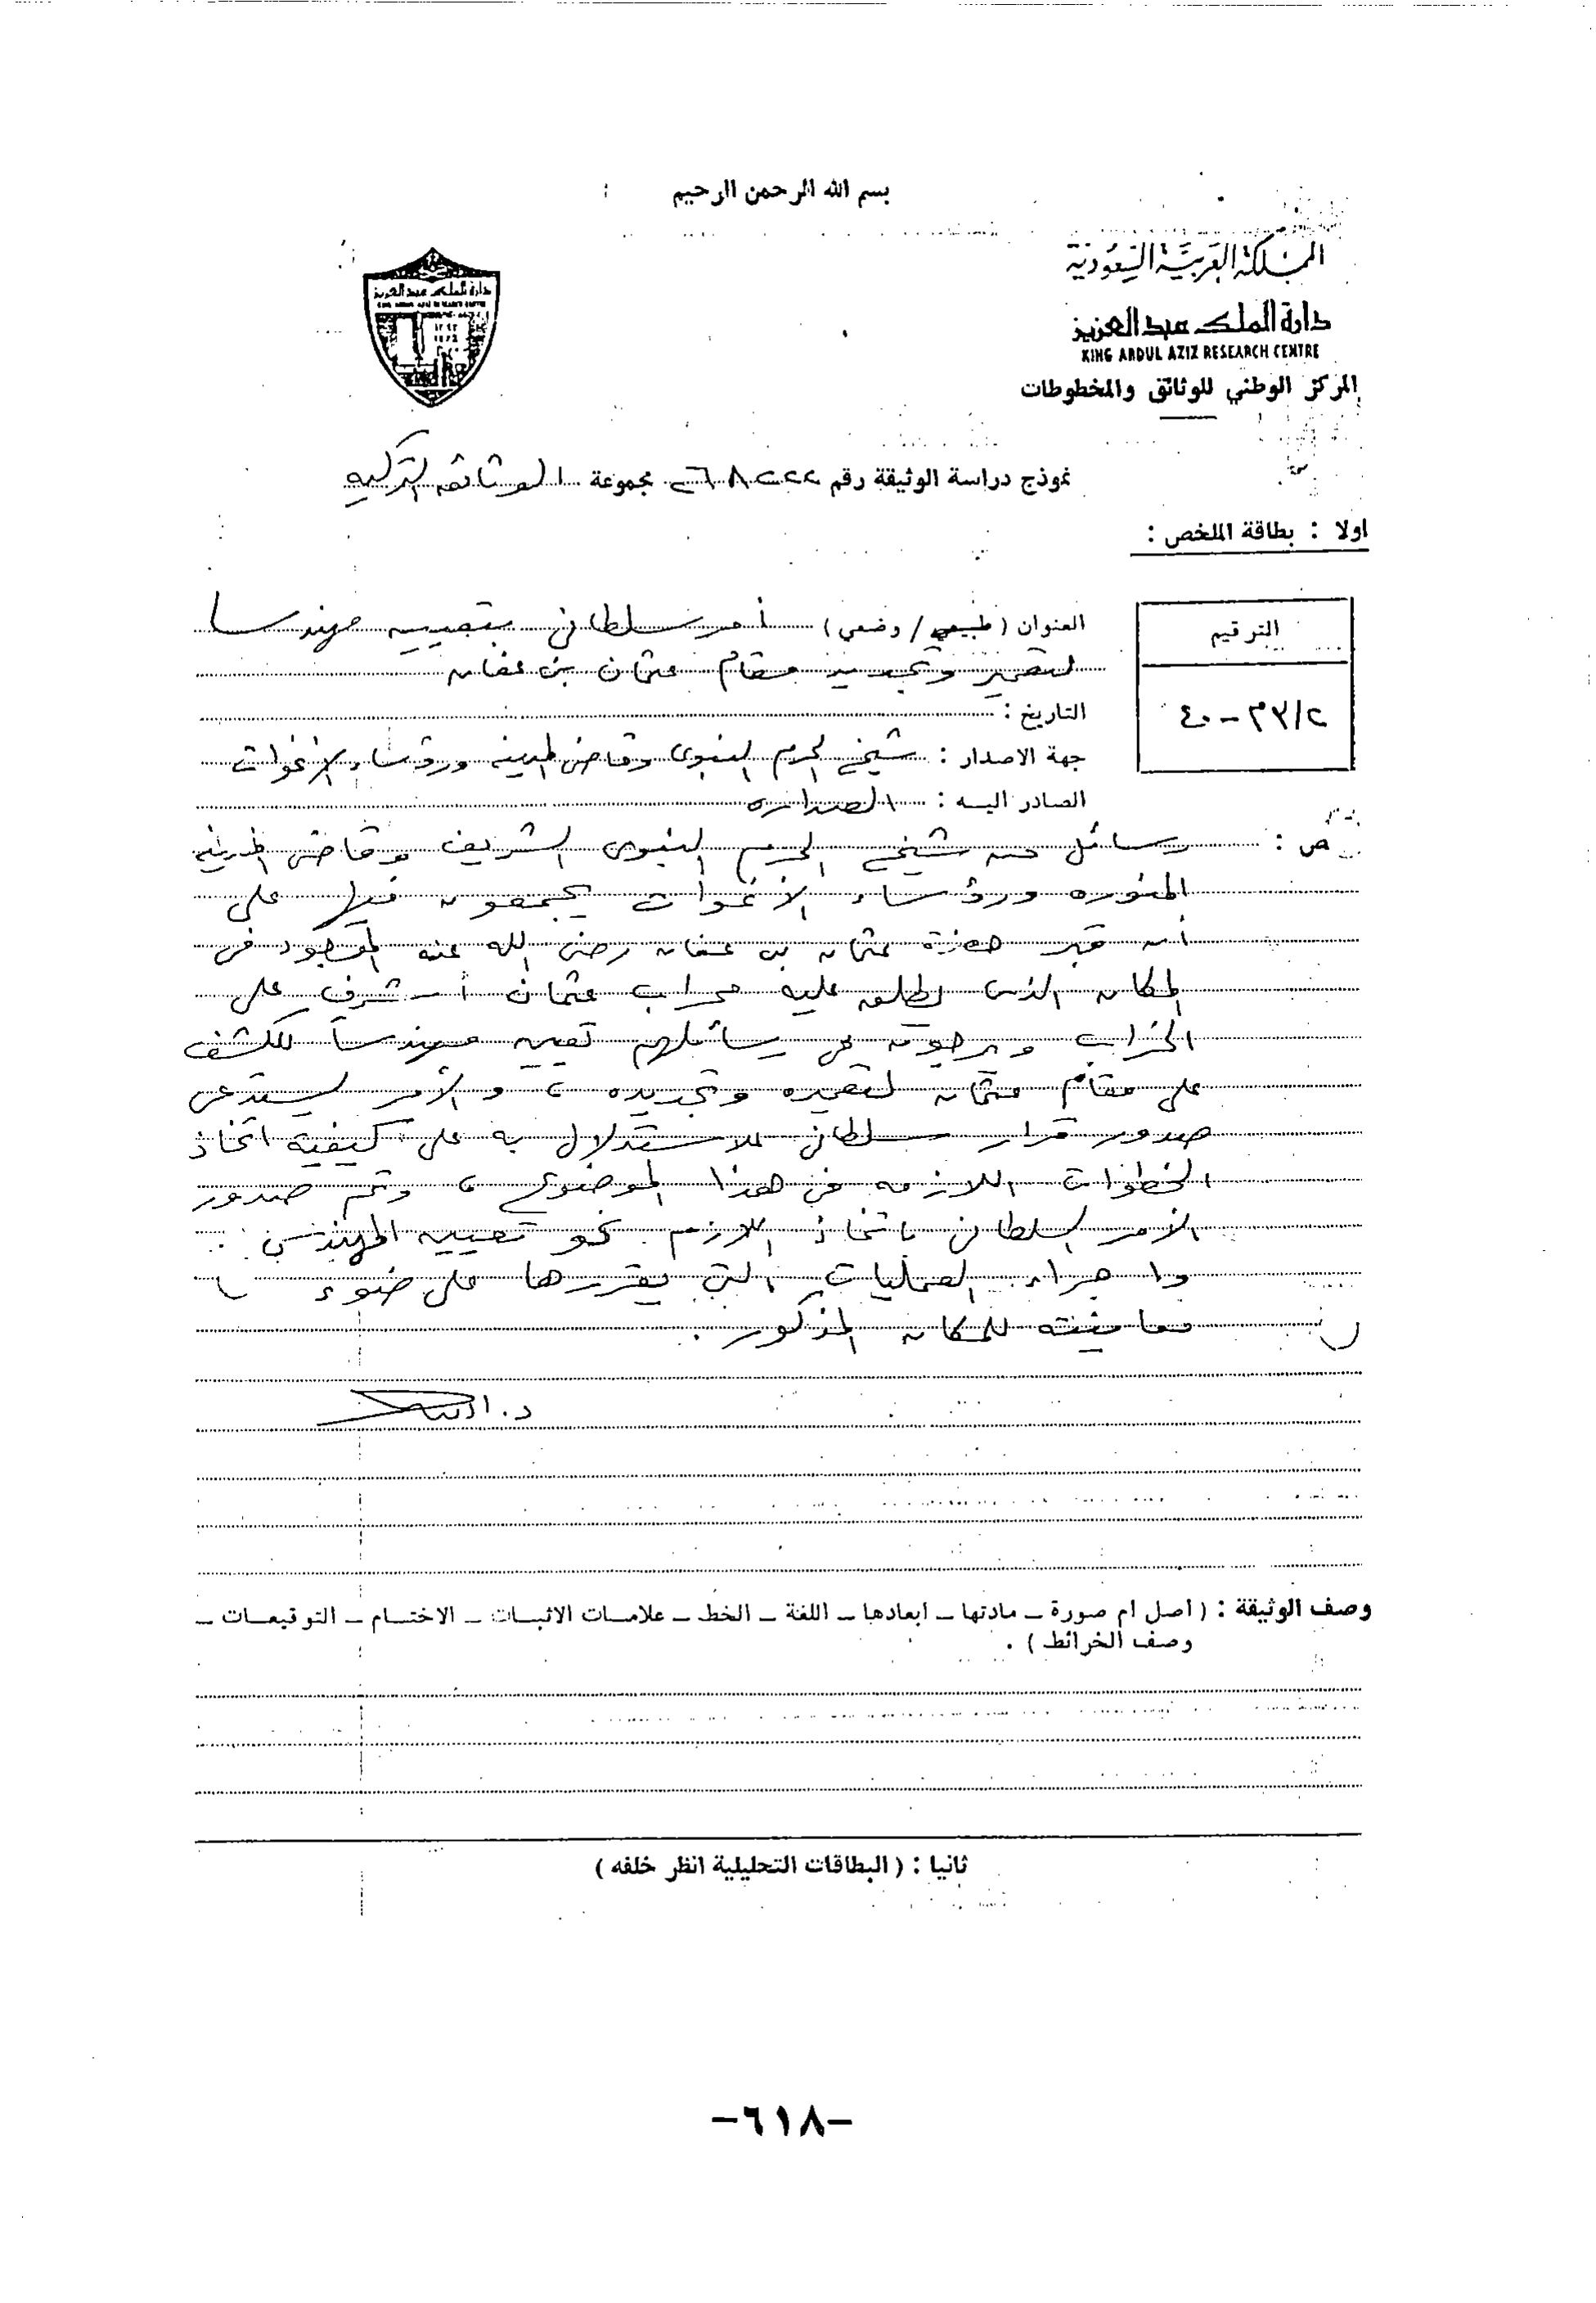 بسم الله الرحمن الرحيم
المملكة العربية السعودية
دارة الملك عبد العزيز
KING ABDUL AZIZ RESEARCH CENTRE
المركز الوطني للوثائق والمخطوطات
دارة الملك عبد العزيز
KING ABDUL AZIZ RESEARCH CENTRE
نموذج دراسة الوثيقة رقم مجموعة الوثائق التركية
اولا : بطاقة الملخص :
الترقيم
٢/٣٧-٤٠
العنوان ( طبيعي / وضعي ) أمر سلطاني بتعيين مهندسا
لتعمير وتجديد مقام عثمان بن عفان
التاريخ :
جهة الاصدار : شيخ الحرم النبوى وقاضى المدينه ورؤساء الأغوات
الصادر اليه : الصداره
ص : رسائل من شيخ الحرم النبوى الشريف وقاضى المدينه
المنوره ورؤساء الأغوات يجمعون فيها على
أن قبر حضرة عثمان بن عفان رضى الله عنه الموجود فى
المكان الذى يطلق عليه محراب عثمان أشرف على
الخراب ويرجون فى رسائلهم تعيين مهندسا للكشف
على مقام عثمان لتعميره وتجديده ، والأمر يستدعى
صدور قرار سلطانى للاستدلال به على كيفية اتخاذ
الخطوات اللازمه فى هذا الموضوع ، وتم صدور
الأمر السلطانى باتخاذ اللازم نحو تعيين المهندس
واجراء العمليات التى يقررها على ضوء
معاينته للمكان المذكور .
د.
وصف الوثيقة : ( أصل ام صورة – مادتها – ابعادها – اللغة – الخط – علامات الاثبات – الاختام – التوقيعات –
وصف الخرائط ) .
ثانيا : ( البطاقات التحليلية انظر خلفه )
-٦١٨-